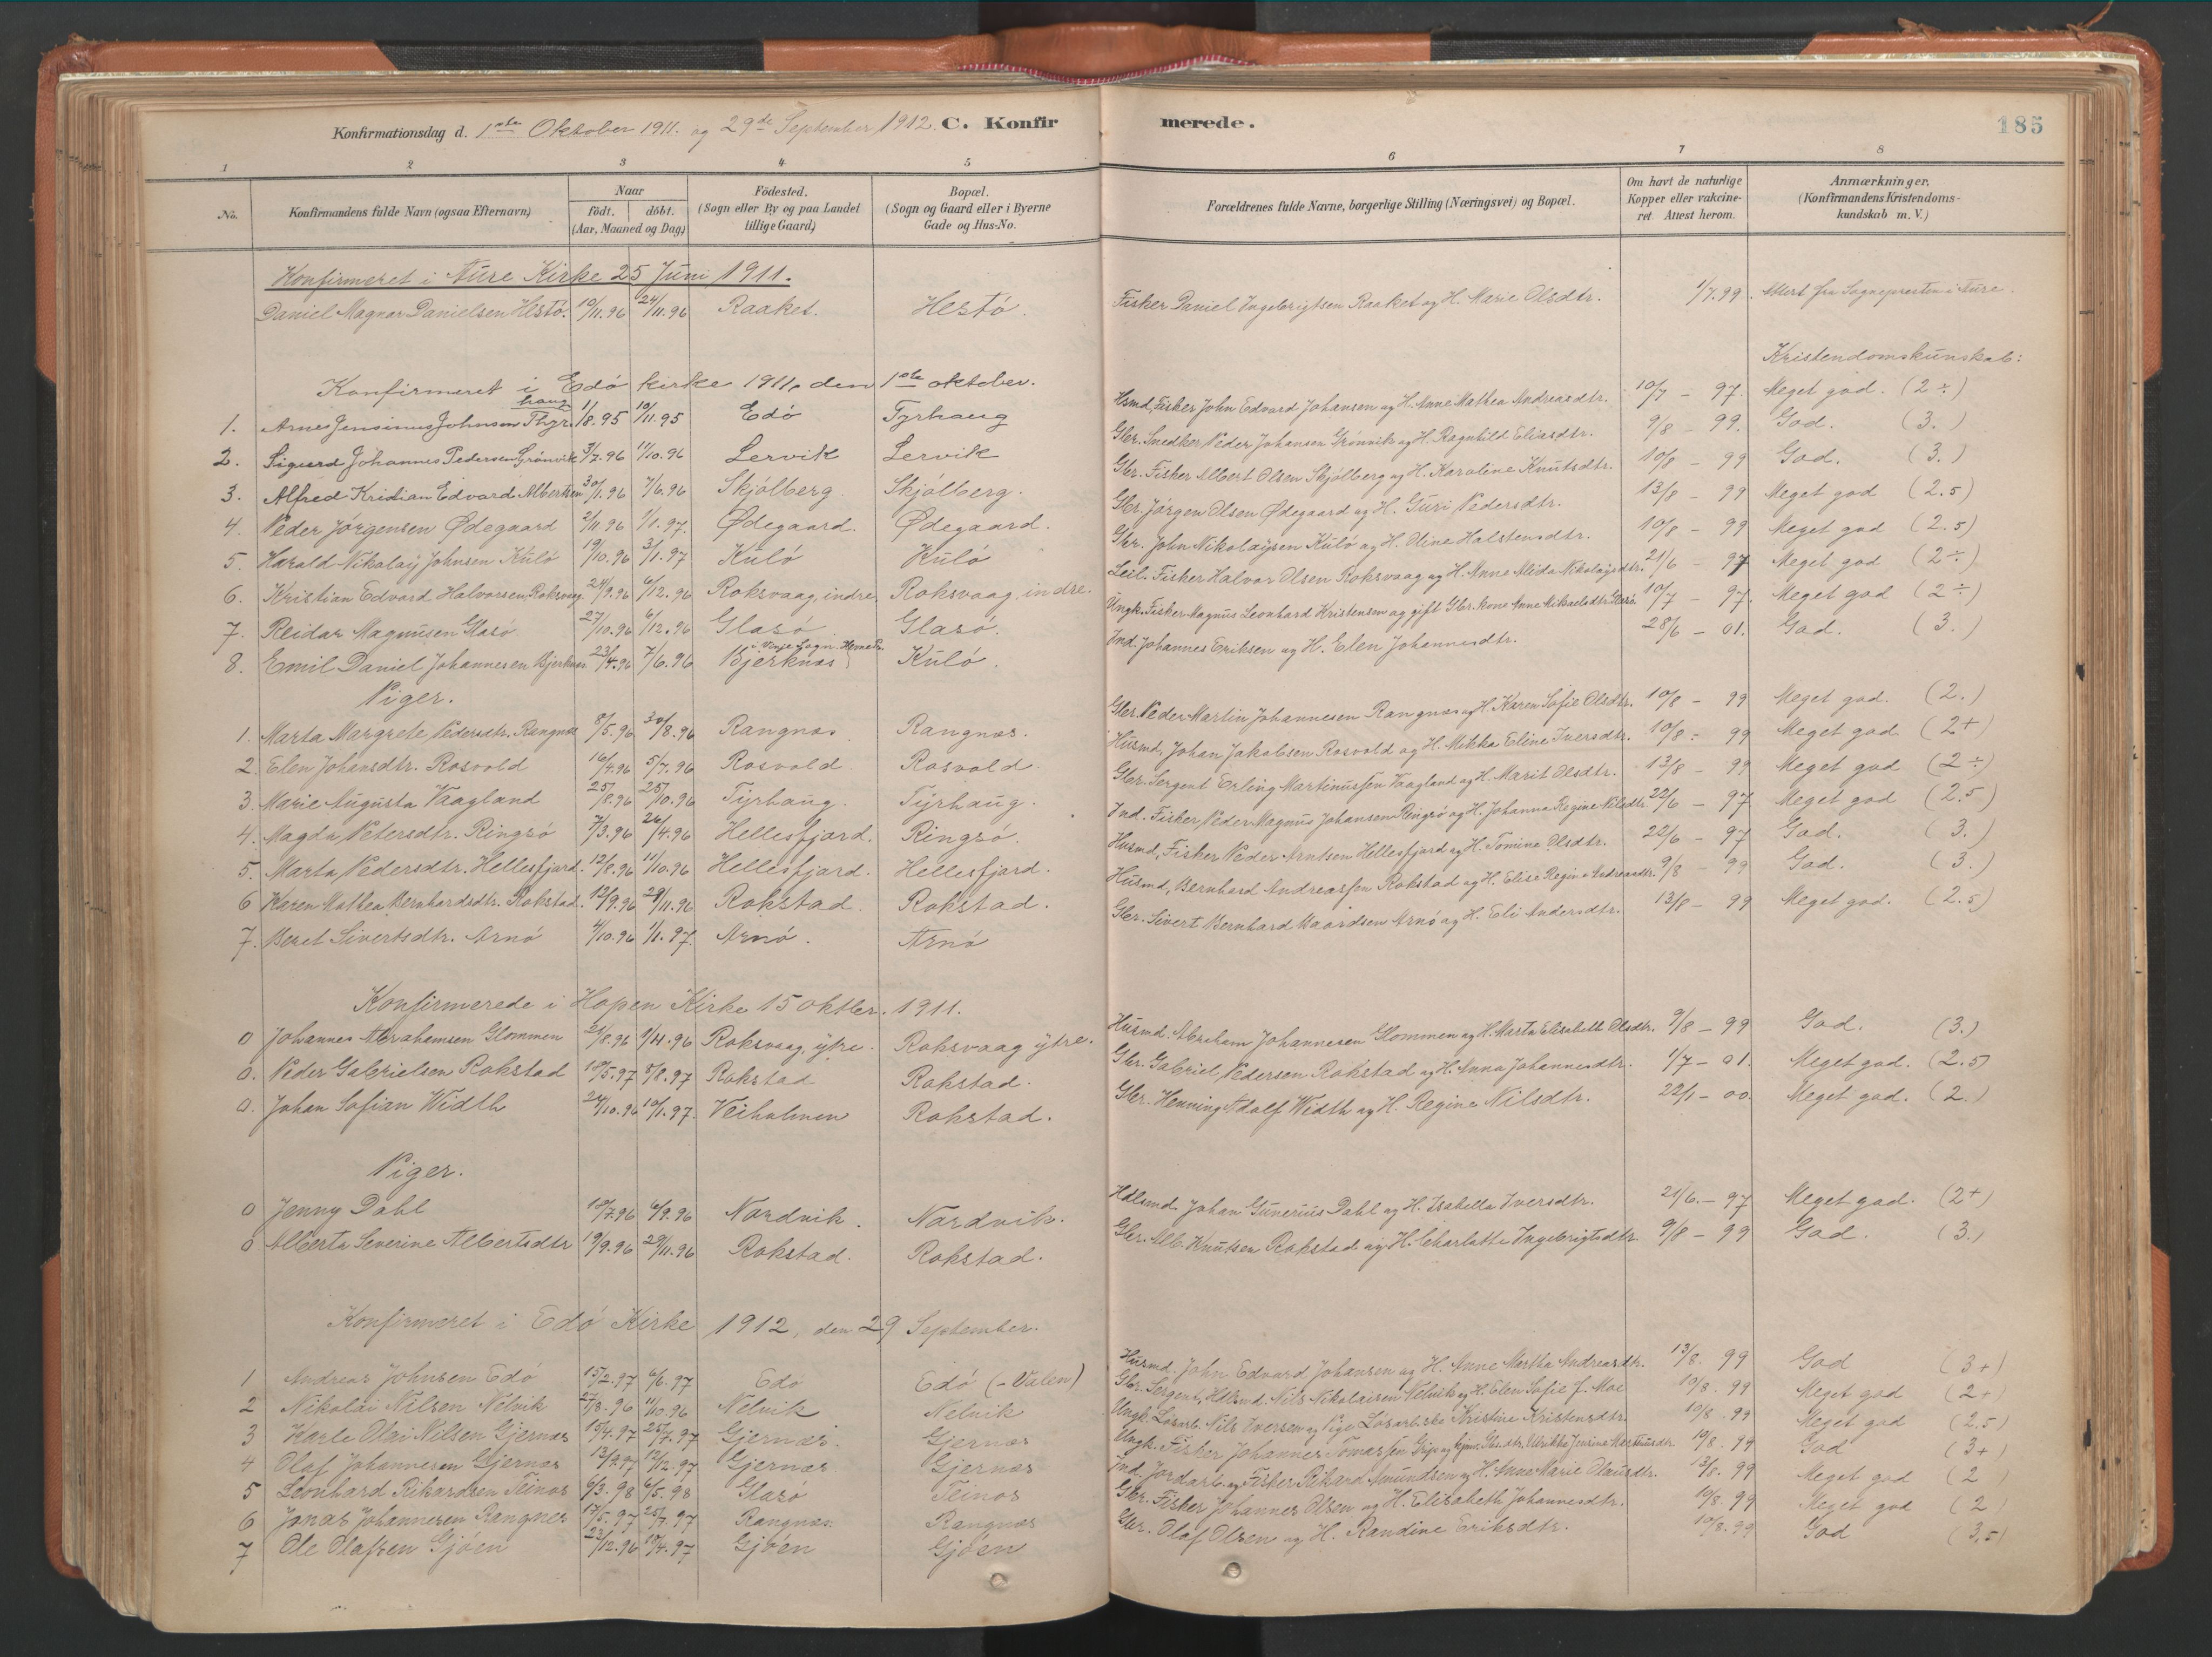 Konfirmationsdag d. 1ste Oktober 1911. og 29de September 1912. C. Konfirmerede. 185
1 2 3 4 5 6 7 8
No. Konfirmandens fulde Navn (ogsaa Efternavn) Naar födt. döbt. (Aar, Maaned og Dag) Födested. (Sogn eller By og paa Landet tillige Gaard) Bopæl. (Sogn og Gaard eller i Byerne Gade og Hus-No. Forældrenes fulde Navne, borgerlige Stilling (Næringsvei) og Bopæl. Om havt de naturlige Kopper eller vakcineret. Attest herom. Anmærkninger. (Konfirmandens Kristendomskundskab m. V.)
Konfirmeret i Aure Kirke 25 Juni 1911.
Daniel Magnar Danielsen Hestö. 10/11.96 24/11.96 Raaket. Hestö. Fisker Daniel Ingebrigtsen Raaket og H. Marie Olsdtr. 1/7.99. Attest fra Sognepresten i Aure.
Kristendomskunskab:
Konfirmeret i Edö kirke 1911, den 1ste oktober.
1. Arnes Jensinus Johnsen Thyrhaug 1/8.95 10/11.95 Edö Tyrhaug Hsmd, Fisker John Edvard Johansen og H. Anne Mathea Andreasdtr. 10/7 - 97. Meget god. (2÷)
2. Sigurd Johannes Pedersen Grönvik 3/7.96 11/10.96 Lervik Lervik Gbr. Snedker Peder Johansen Grönvik og H. Ragnhild Eliasdtr. 9/8 - 99. God. (3.)
3. Alfred Kristian Edvard Albertsen 30/1.96 7/6.96 Skjölberg. Skjölberg. Gbr. Fisker Albert Olsen Skjölberg og H. Karoline Knutsdtr. 10/8 - 99 God. (3.)
4. Peder Jörgensen Ødegaard 2/11.96 1/1.97. Ødegaard. Ødegaard. Gbr. Jörgen Olsen Ødegaard og H. Guri Pedersdtr. 13/8 - 99 Meget god (2.5)
5. Harald Nikolay Johnsen Kulö 19/10.96 3/1.97 Kulö Kulö Gbr. John Nikolaysen Kulö og H. Oline Halstensdtr. 10/8 - 99 Meget god (2.5)
6. Kristian Edvard Halvorsen Roksvaag. 24/9.96 6/12.96 Roksvaag, indre. Roksvaag, indre. Leil. Fisker Halvor Olsen Roksvaag og H. Anne Alida Nikolajsdtr. 21/6 - 97 Meget god (2÷)
7. Reidar Magnusen Glasö 27/10.96 6/12.96 Glasö Glasö. Ungk. Fisker Magnus Leonhard Kristensen og gift Gbr.kone Anne Mikaelsdtr. Glasö. 10/7 - 97. Meget god (2÷)
8. Emil Daniel Johannesen Bjerknæs 23/4.96 7/6.96 Bjerknæs i Vinje Sogn. Hemne P. Kulö. Ind. Johannes Eriksen og H. Elen Johannesdtr. 28/6 - 01. God. (3.)
Piger.
1. Marta Margrete Pedersdtr. Rangnæs 8/5.96 30/8.96 Rangnæs Rangnæs. Gbr. Peder Martin Johannesen Rangnæs og H. Karen Sofie Olsdtr. 10/8 - 99 Meget god. (2.)
2. Elen Johansdtr. Rosvold 16/4.96 5/7.96 Rosvold Rosvold Husmd, Johan Jakobsen Rosvold og H. Mikka Eline Iversdtr. 10/8 - 99 Meget god. (2+)
3. Marie Augusta Vaagland 25/8.96 25/10.96 Tyrhaug. Tyrhaug. Gbr. Sergent Erling Martinussen Vaagland og H. Marit Olsdtr. 13/8 - 99 Meget god (2÷)
4. Magda Petersdtr. Ringsö 7/3.96 26/4.96 Hellesfjord. Ringsö. Ind. Fisker Peder Magnus Johansen Ringsö og H. Johanna Regine Nilsdtr. 22/6 - 97 Meget god (2.5)
5. Marta Pedersdtr. Hellesfjord. 12/8.96 11/10.96 Hellesfjord. Hellesfjord. Husmd, Fisker Peder Arntsen Hellesfjord og H. Tomine Olsdtr. 22/6 - 97 God. (3.)
6 Karen Mathea Bernhardsdtr. Rokstad. 12/9.96 29/11.96 Rokstad. Rokstad. Husmd, Bernhard Andreassen Rokstad og H. Elise Regine Andreasdtr. 9/8 - 99 God. (3.)
7. Beret Sivertsdtr. Arnö 4/10.96 1/1.97. Arnö. Arnö Gbr. Sivert Bernhard Baardsen Arnö og H. Eli Andersdtr. 13/8 - 99 Meget god. (2.5)
Konfirmerede i Hopen Kirke 15 oktbr. 1911.
0 Johannes Abrahamsen Glommen 29/8.96 1/11.96 Roksvaag, ytre. Roksvaag ytre. Husmd. Abraham Johannesen Glommen og H. Marta Elisabeth Olsdtr. 9/8 - 99 God. (3.)
0. Peder Gabrielsen Rokstad 18/5.97 8/8.97 Rokstad Rokstad. Gbr. Gabriel Pedersen Rokstad og H. Anna Johannesdtr. 1/7 - 01. Meget god. (2.5)
0. Johan Sofian Width 24/10.96 10/1.97. Veiholmen Rokstad. Gbr. Henning Adolf Width og H. Regine Nilsdtr. 22/1 - 00. Meget god. (2.)
Piger.
0 Jenny Dahl 18/7.96 6/9.96 Nordvik. Nordvik. Hdlsmd. Johan Gunerius Dahl og H. Isabella Iversdtr. 21/6. - 97 Meget god. (2+)
0 Alberta Severine Albertsdtr 19/9.96 29/11.96 Rokstad. Rokstad. Gbr. Alb. Knutsen Rokstad og H. Charlotte Ingebrigtsdtr. 9/8 - 99 God. (3.)
Konfirmeret i Edö Kirke 1912, den 29 September.
1 Andreas Johnsen Edö 15/2.97 6/6.97 Edö Edö (-Valen) Husmd, John Edvard Johansen og H. Anne Martha Andreasdtr. 13/8. 99 God (3+)
2 Nikolai Nilsen Nelvik 27/8.96 11/10.96 Nelvik Nelvik Gbr. Sergent, Hdlsmd. Nils Nikolaisen Nelvik og H. Elen Sofie f. Moe 10/8. 99 Meget god (2+)
3 Karle Olai Nilsen Gjernæs 15/4.97 25/7.97 Gjernæs. Gjernæs Ungk. Løsarb. Nils Iversen og Pige Løsarb.ske Kristine Kristensdtr. 10/8. 99 Meget god (2.5)
4 Olaf Johannesen Gjernæs 13/9.97 12/12.97 Gjernæs Gjernæs Ungk. Fisker Johannes Tomassen Grip og Gbr.dtr. Ulrikke Jensine 10/8. 99 God (3+)
5 Leonhard Rikardsen Teinæs 6/3.98 6/5.98 Glasö Teinæs Ind. Jordarb. og Fisker Rikard Amundsen og H. Anne Marie Olausdtr. 13/8. 99 Meget god (2)
6 Jonas Johannesen Rangnes 17/5.97 25/7.97 Rangnæs. Rangnæs Gbr. Fisker Johannes Olsen og H. Elisabeth Johannesdtr. 10/8. 99 Meget god (2)
7 Ole Olafsen Gjöen 23/12.96 19/4.97 Gjöen Gjöen Gbr. Olaf Olsen og H. Randine Eriksdtr. 10/8.99 God (3,5)